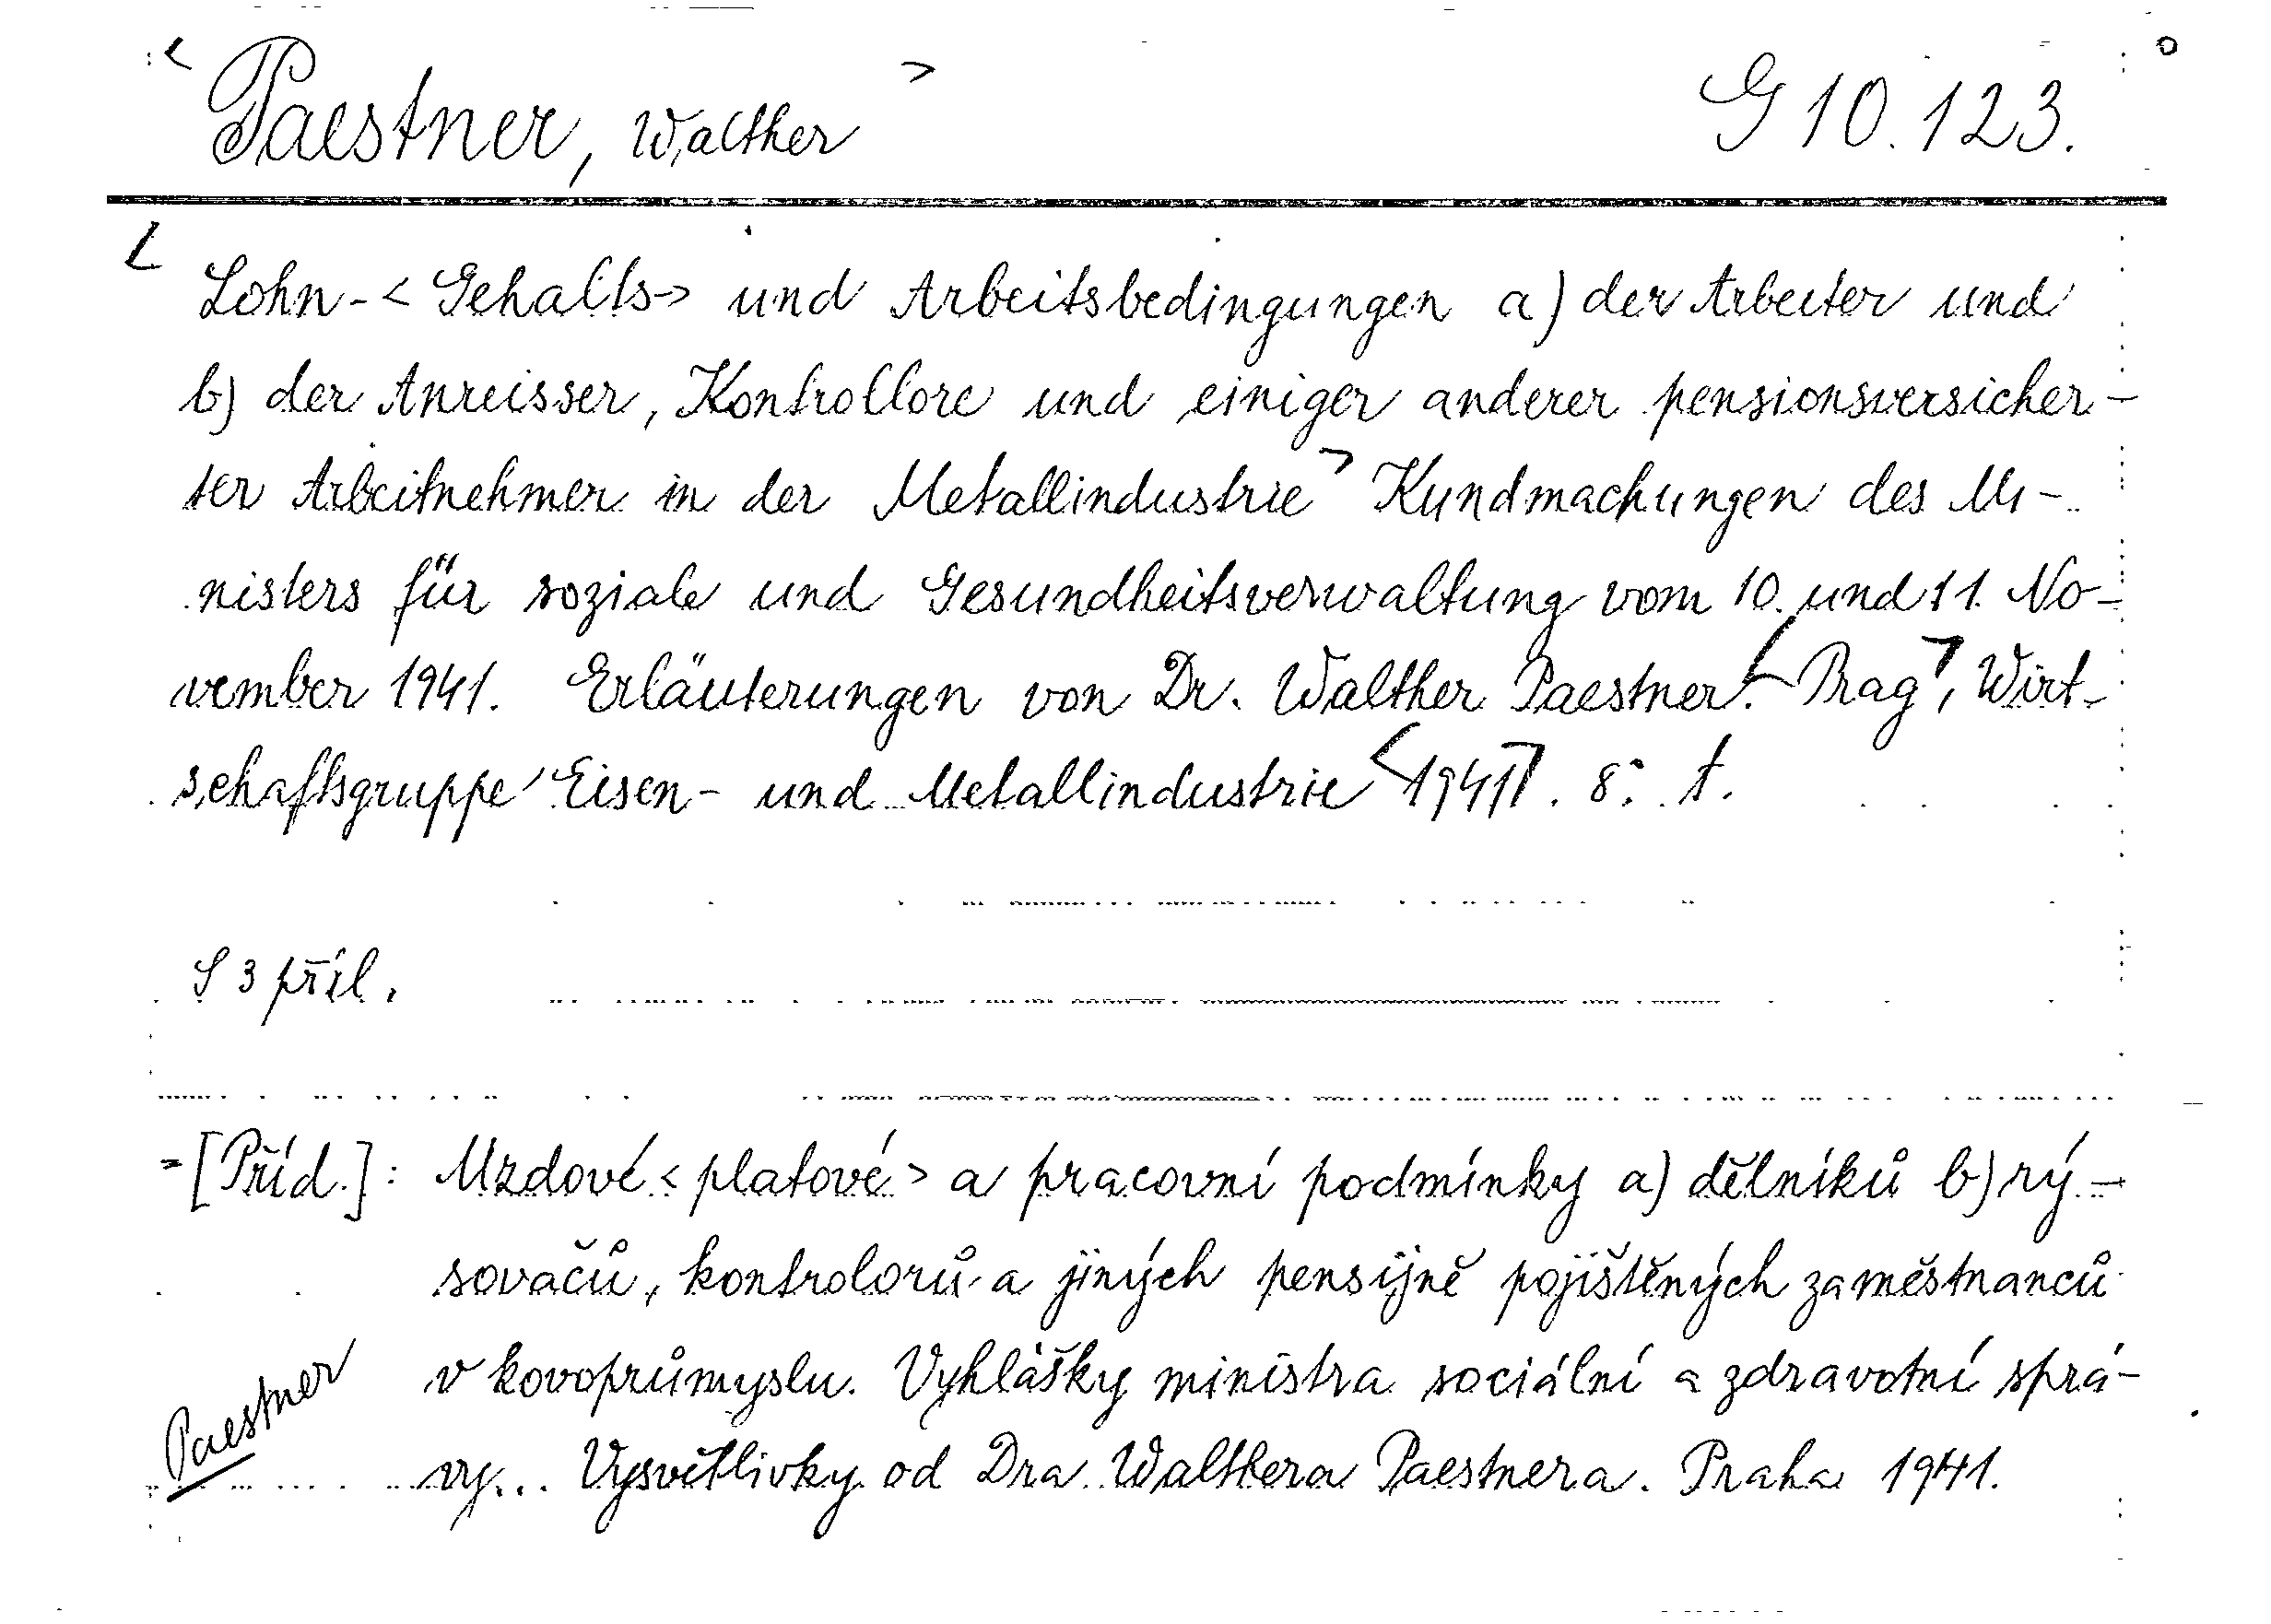 < Paestner, Walther > G 10.123.
Lohn-<Gehalts-> und Arbeitsbedingungen a) der Arbeiter und
b) der Anreisser, Kontrollore und einiger anderer pensionsversicher-
ter Arbeitnehmer in der Metallindustrie> Kundmachungen des Mi-
nisters für soziale und Gesundheitsverwaltung vom 10. und 11. No-
vember 1941. Erläuterungen von Dr. Walther Paestner. <Prag>, Wirt-
schaftsgruppe Eisen- und Metallindustrie <1941>. 8°. t.
S 3 příl.
=[Příd.]: Mzdové <platové> a pracovní podmínky a) dělníků b) rý-
sovačů, kontrolorů a jiných pensijně pojištěných zaměstnanců
v kovoprůmyslu. Vyhlášky ministra sociální a zdravotní sprá-
vy... Vysvětlivky od Dra Walthera Paestnera. Praha 1941.
Paestner